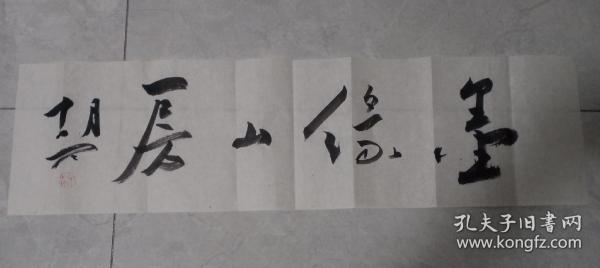 墨缘山房
孔夫子旧书网
www.kongfz.com